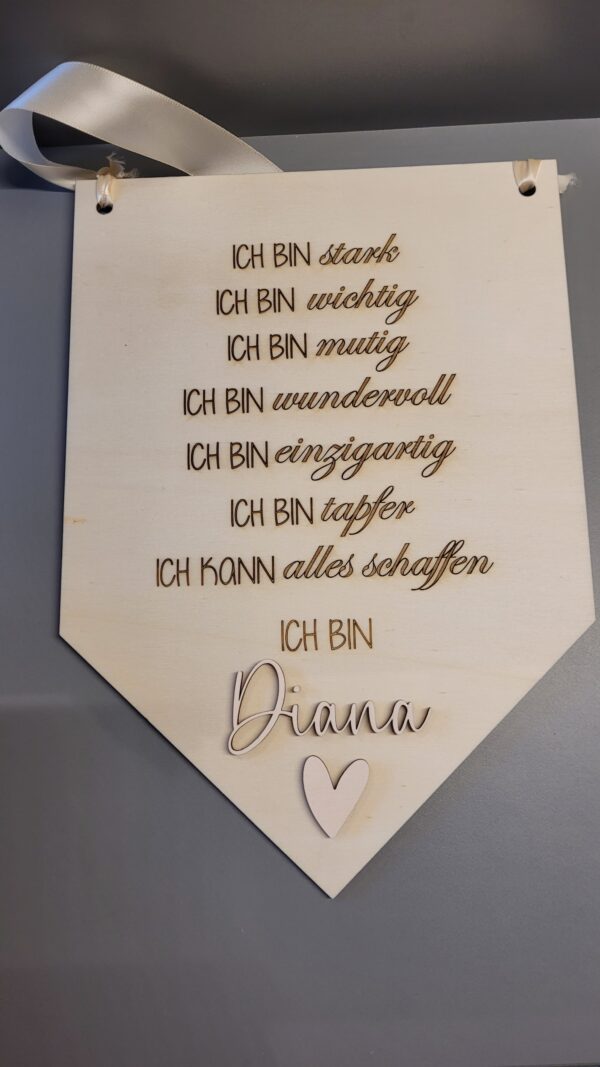 ICH BIN stark
ICH BIN wichtig
ICH BIN mutig
ICH BIN wundervoll
ICH BIN einzigartig
ICH BIN tapfer
ICH KANN alles schaffen
ICH BIN
Diana